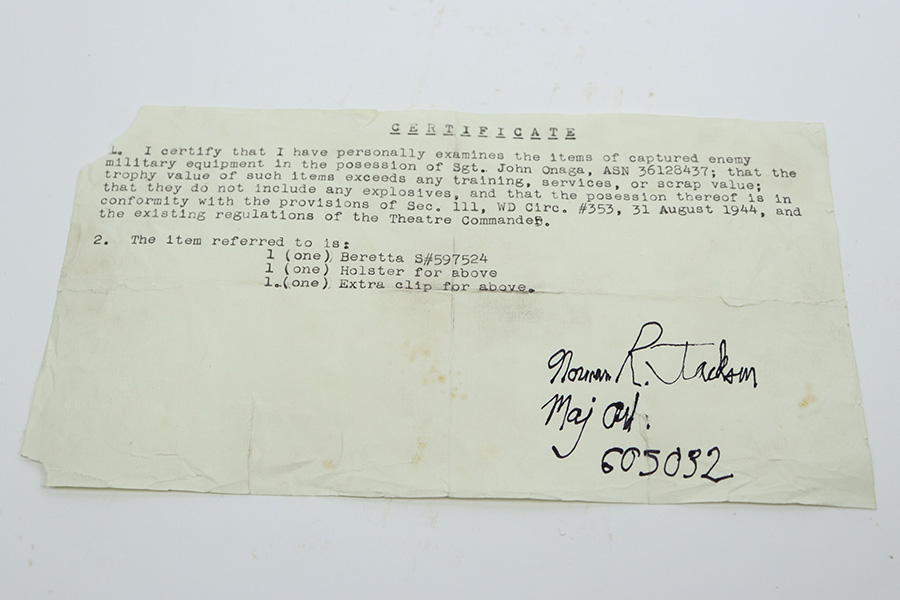 CERTIFICATE
1. I certify that I have personally examines the items of captured enemy
military equipment in the posession of Sgt. John Onaga, ASN 36128437; that the
trophy value of such items exceeds any training, services, or scrap value;
that they do not include any explosives, and that the posession thereof is in
conformity with the provisions of Sec. 111, WD Circ. #353, 31 August 1944, and
the existing regulations of the Theatre Commander.
2. The item referred to is:
1 (one) Beretta S#597524
1 (one) Holster for above
1.(one) Extra clip for above.
Norman R. Jackson
Maj
605032